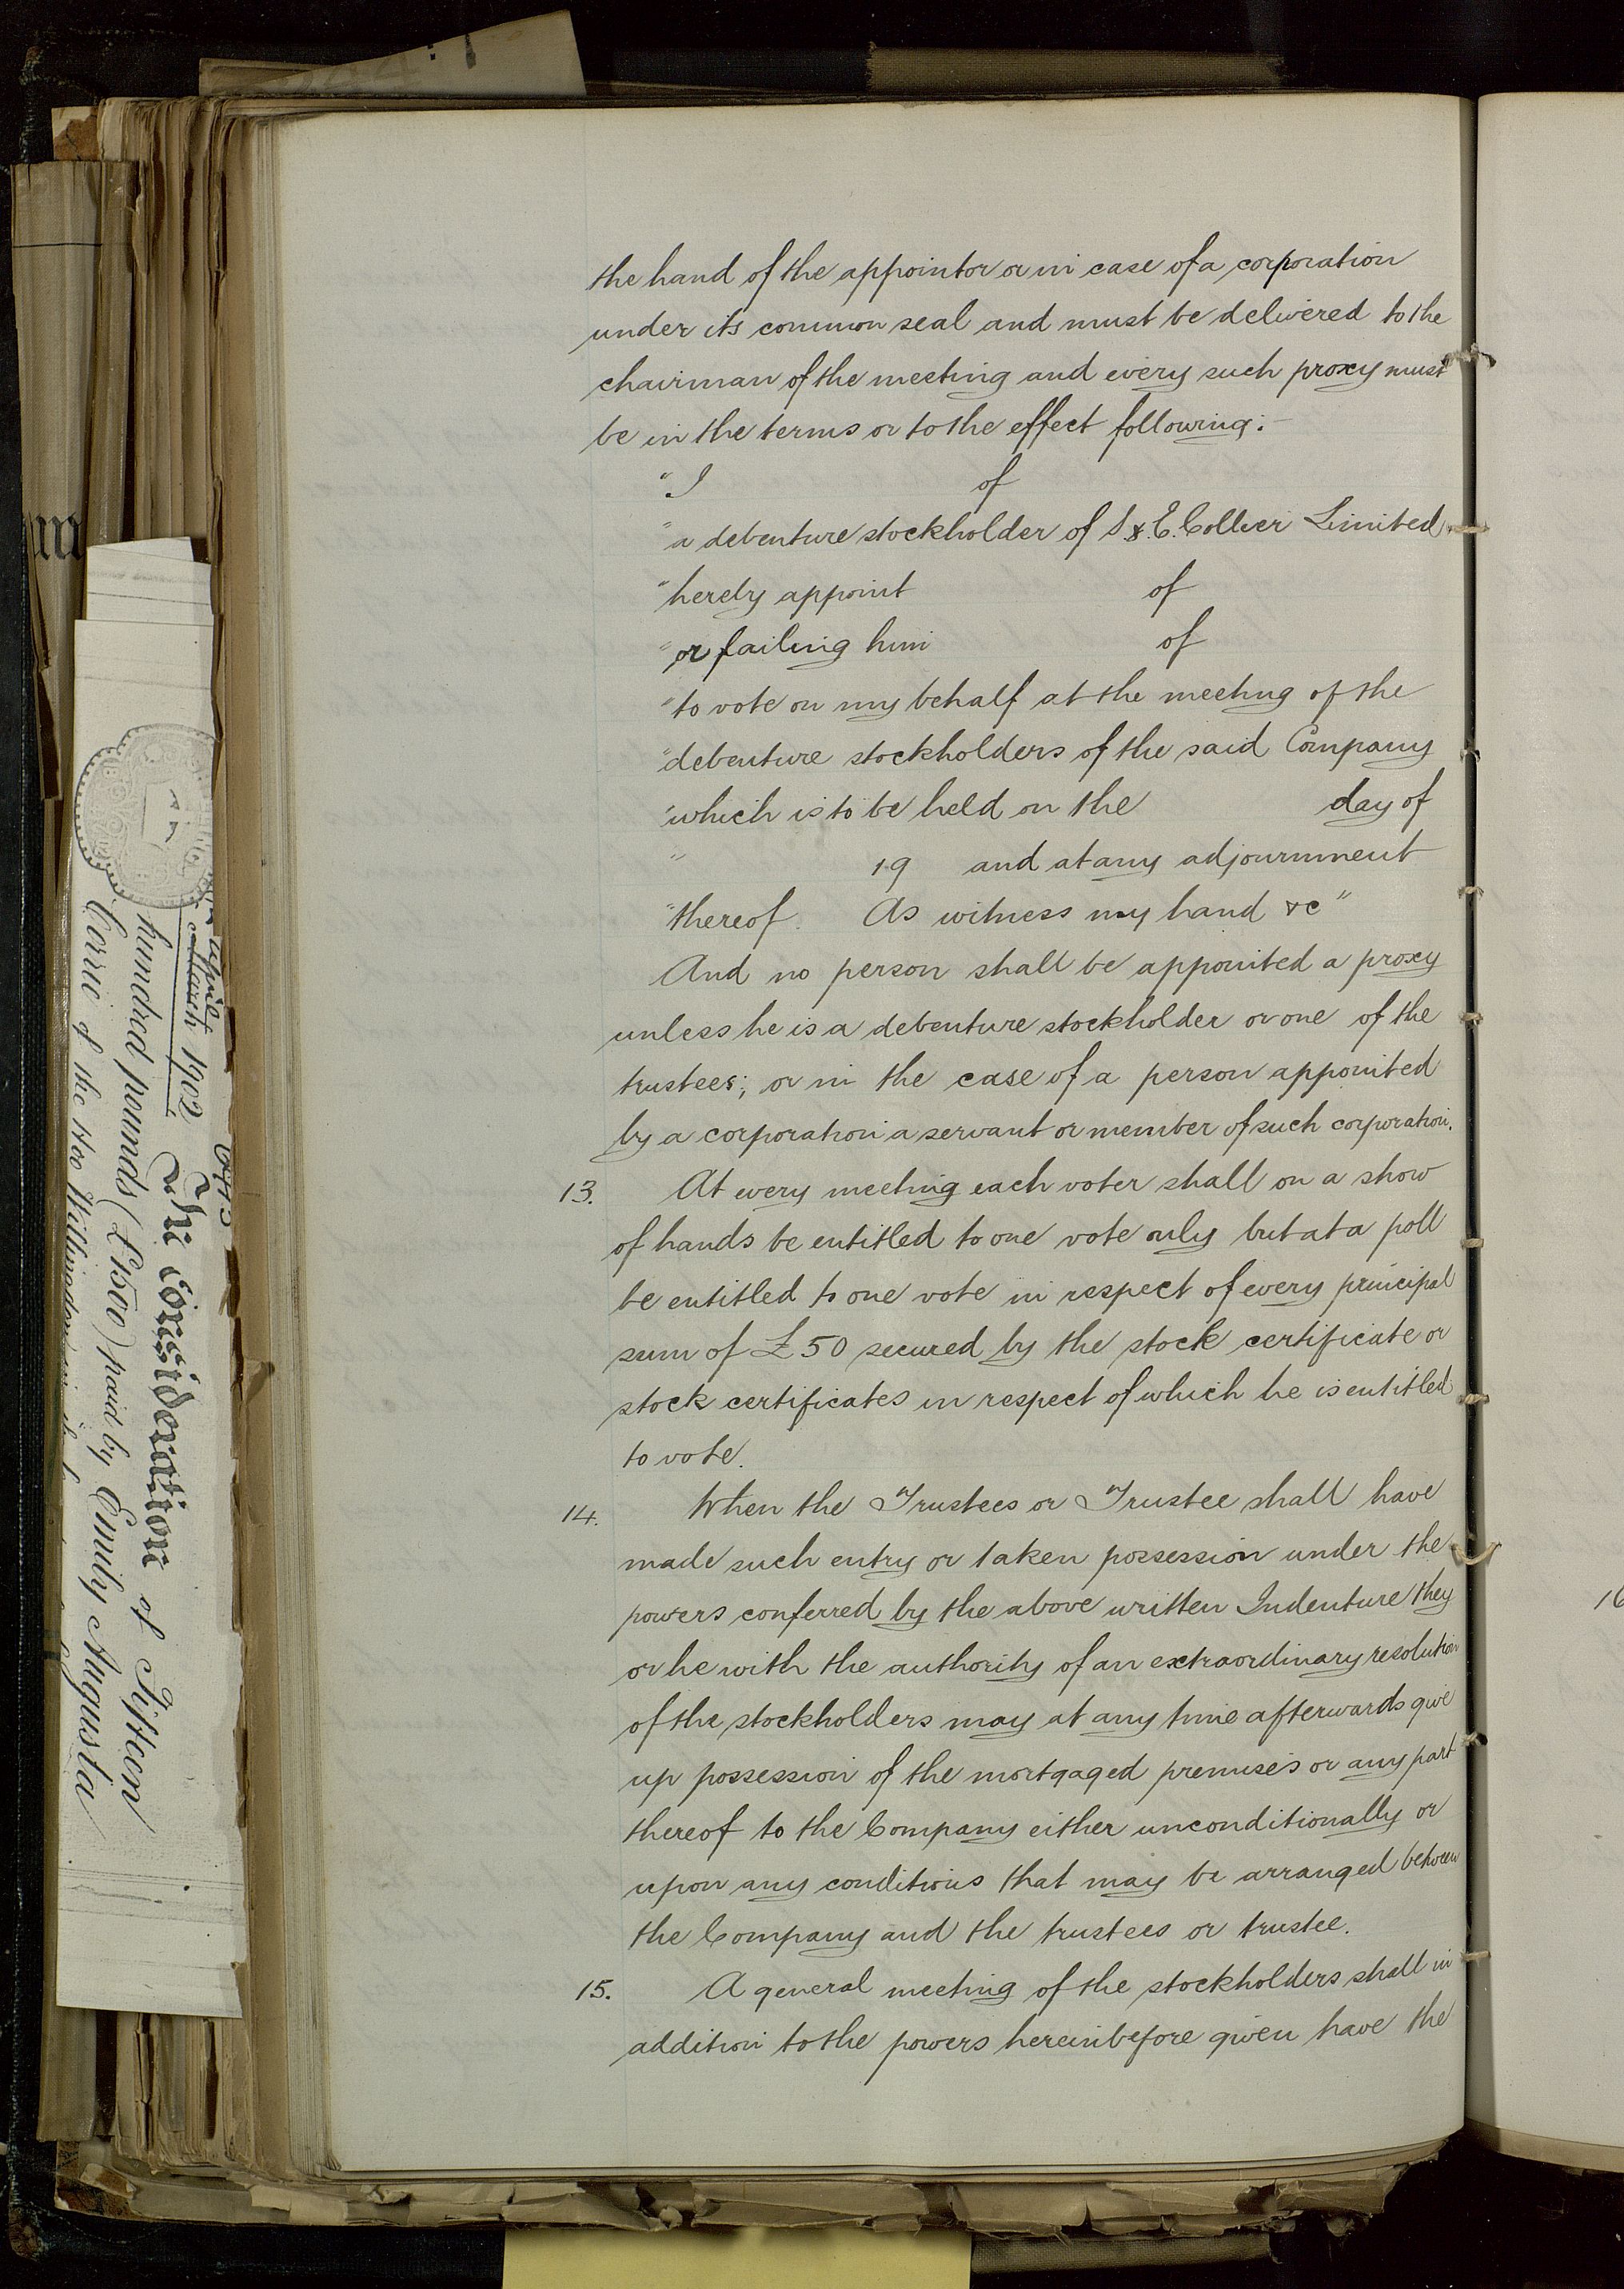 the hand of the appointor or in case of a corporation
under its common seal and must be delivered to the
chairman of the meeting and every such proxy must
be in the terms or to the effect following:-
"I of
"a debenture stockholder of S. & E. Collier Limited
"hereby appoint of
"or failing him of
"to vote on my behalf at the meeting of the
"debenture stockholders of the said Company
"which is to be held on the day of
" 19 and at any adjournment
"thereof. As witness my hand &c"
And no person shall be appointed a proxy
unless he is a debenture stockholder or one of the
trustees; or in the case of a person appointed
by a corporation a servant or member of such corporation.
13. At every meeting each voter shall on a show
of hands be entitled to one vote only but at a poll
be entitled to one vote in respect of every principal
sum of £50 secured by the stock certificate or
stock certificates in respect of which he is entitled
to vote.
14. When the Trustees or Trustee shall have
made such entry or taken possession under the
powers conferred by the above written Indenture they
or he with the authority of an extraordinary resolution
of the stockholders may at any time afterwards give
up possession of the mortgaged premises or any part
thereof to the Company either unconditionally or
upon any conditions that may be arranged between
the Company and the trustees or trustee.
15. A general meeting of the stockholders shall in
addition to the powers hereinbefore given have the
April
March 1902 The Consideration of Fifteen
hundred pounds (£1500) paid by Emily Augusta
of the
16